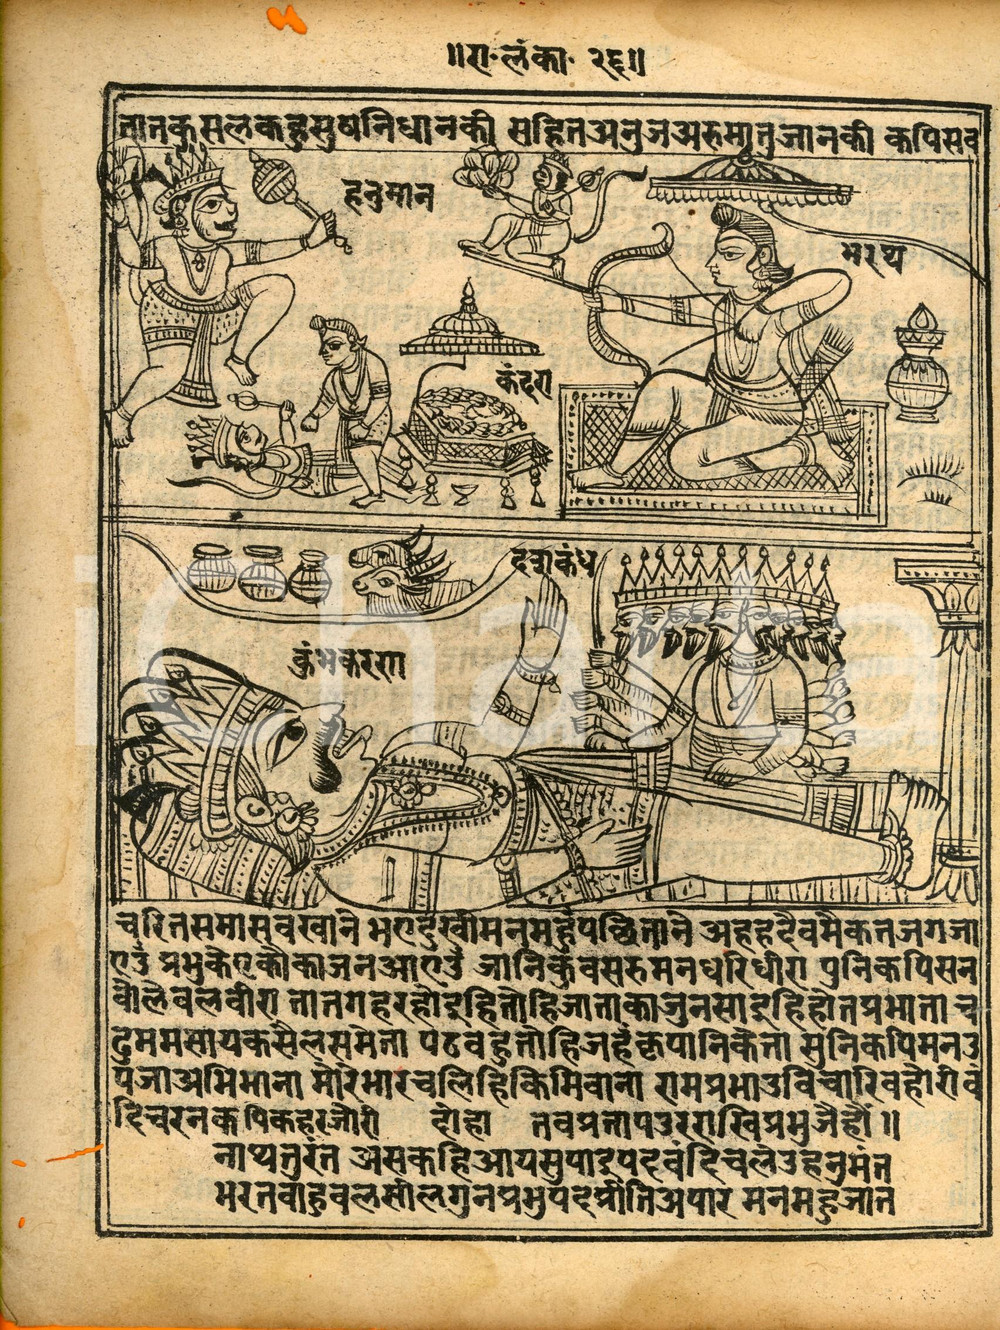 ॥रा॰लंका॰ २६॥
तातकुसलकहुसुषनिधानकी सहितअनुजअरुमातुजानकी कपिसव
हनुमान
भरथ
कंदरा
दशकंध
कुंभकररण
चरितसमासवखाने भएदुखीमनमहुंपछिताने अहहदैवमैकतजगजा
एउं प्रभुकेएकौकाजनआएउं जानिकुवसरुमनधरिधीरा पुनिकपिसन
वोलेवलवीरा तातगहरहोइहितोहिजाता काजुनसाइहिहोतप्रभाता च
ढुममसायकसैलसमेता पठवहुंतोहिजहंकृपानिकेता सुनिकपिमनउ
पजाअभिमाना मोरेभारचलिहिकिमिवाना रामप्रभाउविचारिवहोरी वं
दिचरनकपिकहकरजोरी दोहा तवप्रतापउरराखिप्रभुजैहौं॥
नाथतुरंत असकहिआयसुपाइपदवंदिचलेउहनुमंत
भरतवाहुवलसीलगुनप्रभुपदप्रीतिअपार मनमहुजात